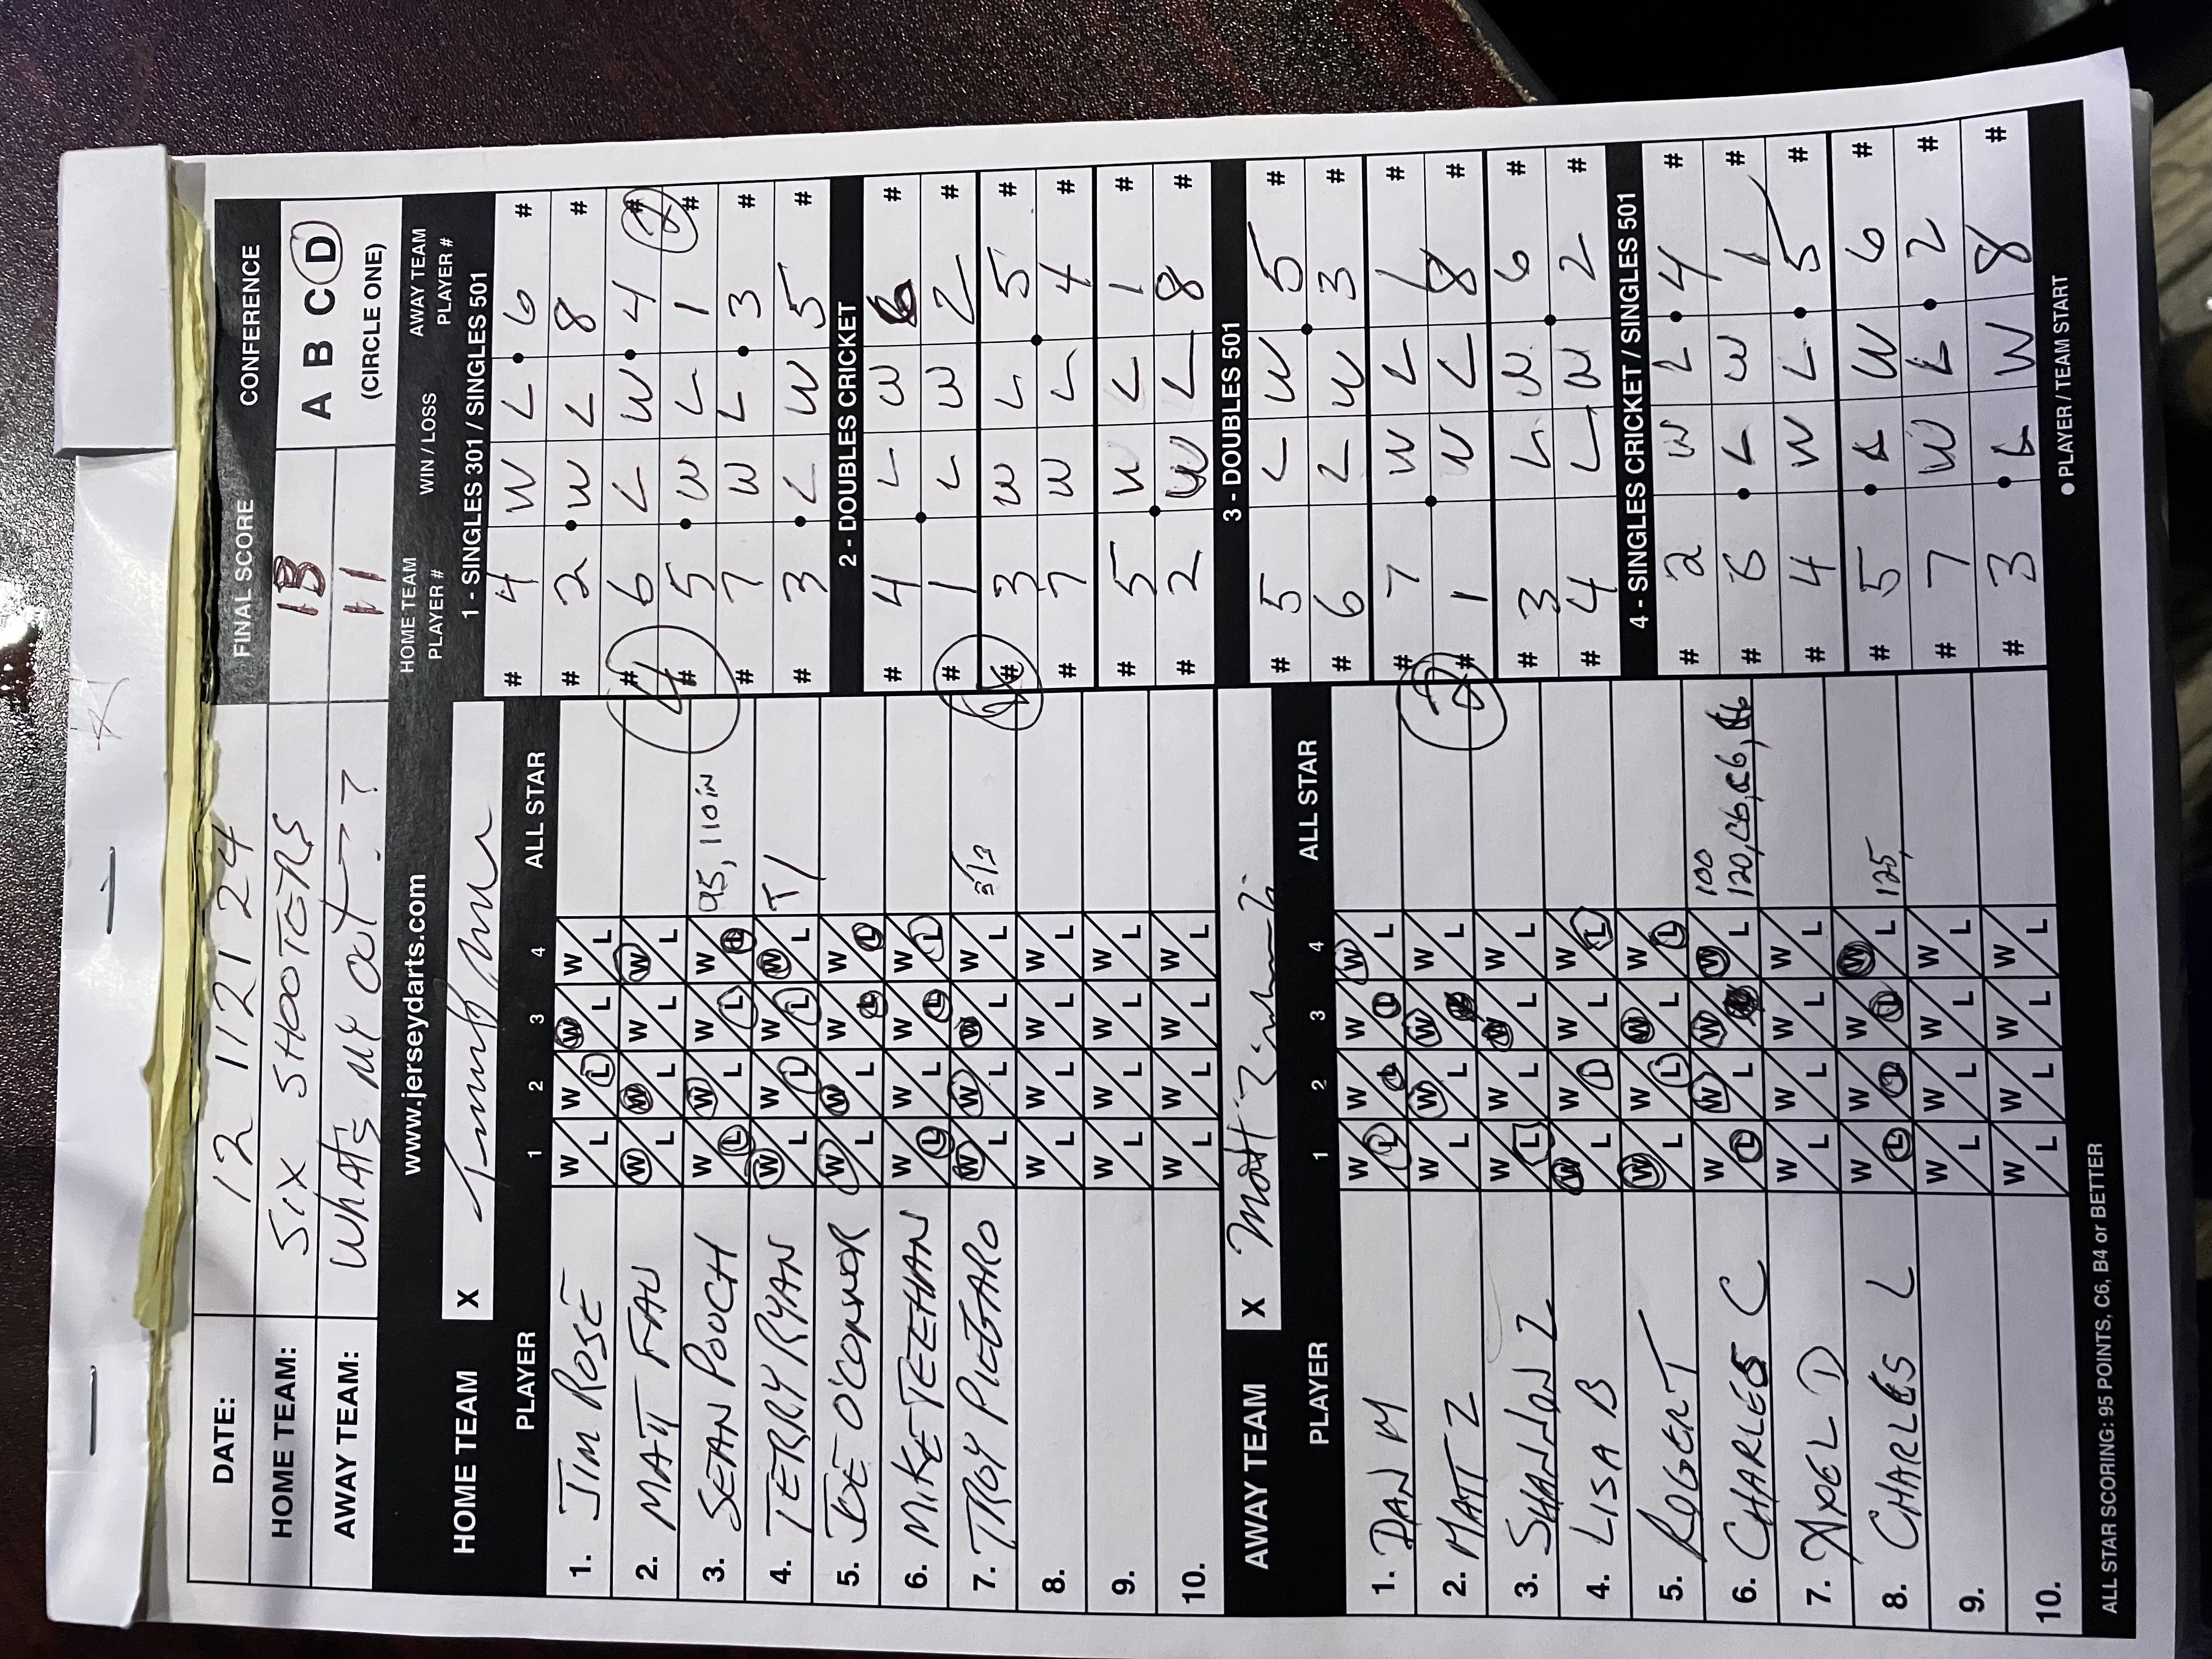 DATE: 12 1121 24
FINAL SCORE CONFERENCE
HOME TEAM: SIX SHOOTERS 13 A B C D
AWAY TEAM: WHAT'S MY OUT?? 11 (CIRCLE ONE)
www.jerseydarts.com
HOME TEAM X
PLAYER 1 2 3 4 ALL STAR
1. JIM ROSE W L W L W L W L
2. MATT FAU W L W L W L W L
3. SEAN POUCH W L W L W L W L 95, 110 IN
4. TERRY RYAN W L W L W L W L T1
5. JOE O'CONNOR W L W L W L W L
6. MIKE TEEHAN W L W L W L W L
7. TROY PIEGARO W L W L W L W L
8. W L W L W L W L
9. W L W L W L W L
10. W L W L W L W L
AWAY TEAM X
PLAYER 1 2 3 4 ALL STAR
1. DAN M W L W L W L W L
2. MATT Z W L W L W L W L
3. SHANNON Z W L W L W L W L
4. LISA B W L W L W L W L
5. ROGER T W L W L W L W L
6. CHARLES C W L W L W L W L 100
120, C6, C6, C6
7. AXEL D W L W L W L W L
8. CHARLES L W L W L W L W L 125,
9. W L W L W L W L
10. W L W L W L W L
ALL STAR SCORING: 95 POINTS, C6, B4 or BETTER
HOME TEAM PLAYER # WIN / LOSS AWAY TEAM PLAYER #
1 - SINGLES 301 / SINGLES 501
# 4 W L 6 #
# 2 W L 8 #
# 6 L W 4 #
# 5 W L 1 #
# 7 W L 3 #
# 3 L W 5 #
4
2
2 - DOUBLES CRICKET
# 4 L W 6 #
# 1 L W 2 #
# 3 W L 5 #
# 7 W L 4 #
# 5 W L 1 #
# 2 W L 8 #
3 - DOUBLES 501
# 5 L W 5 #
# 6 L W 3 #
# 7 W L 1 #
# 1 W L 8 #
# 3 L W 6 #
# 4 L W 2 #
4 - SINGLES CRICKET / SINGLES 501
# 2 W L 4 #
# 6 L W 1 #
# 4 W L 5 #
# 5 L W 6 #
# 7 W L 2 #
# 3 L W 8 #
PLAYER / TEAM START